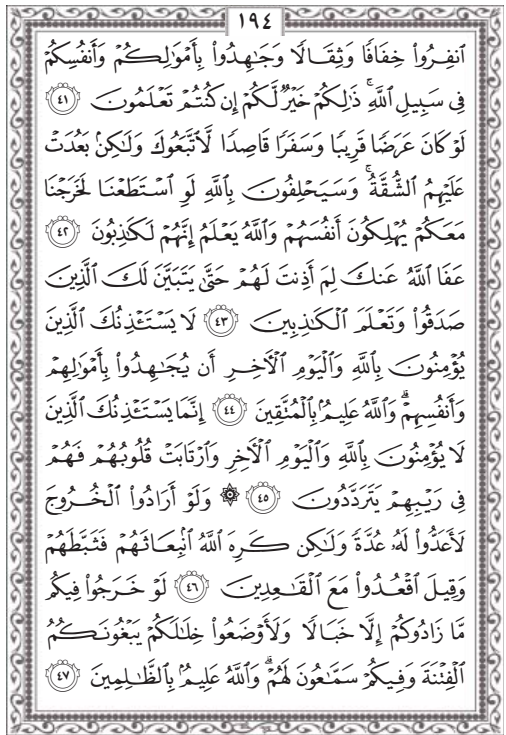 ١٩٤
ٱنفِرُوا۟ خِفَافًا وَثِقَالًا وَجَٰهِدُوا۟ بِأَمْوَٰلِكُمْ وَأَنفُسِكُمْ
فِى سَبِيلِ ٱللَّهِ ۚ ذَٰلِكُمْ خَيْرٌ لَّكُمْ إِن كُنتُمْ تَعْلَمُونَ ٤١
لَوْ كَانَ عَرَضًا قَرِيبًا وَسَفَرًا قَاصِدًا لَّٱتَّبَعُوكَ وَلَٰكِنۢ بَعُدَتْ
عَلَيْهِمُ ٱلشُّقَّةُ ۚ وَسَيَحْلِفُونَ بِٱللَّهِ لَوِ ٱسْتَطَعْنَا لَخَرَجْنَا
مَعَكُمْ يُهْلِكُونَ أَنفُسَهُمْ وَٱللَّهُ يَعْلَمُ إِنَّهُمْ لَكَٰذِبُونَ ٤٢
عَفَا ٱللَّهُ عَنكَ لِمَ أَذِنتَ لَهُمْ حَتَّىٰ يَتَبَيَّنَ لَكَ ٱلَّذِينَ
صَدَقُوا۟ وَتَعْلَمَ ٱلْكَٰذِبِينَ ٤٣ لَا يَسْتَـْٔذِنُكَ ٱلَّذِينَ
يُؤْمِنُونَ بِٱللَّهِ وَٱلْيَوْمِ ٱلْـَٔاخِرِ أَن يُجَٰهِدُوا۟ بِأَمْوَٰلِهِمْ
وَأَنفُسِهِمْ ۗ وَٱللَّهُ عَلِيمٌۢ بِٱلْمُتَّقِينَ ٤٤ إِنَّمَا يَسْتَـْٔذِنُكَ ٱلَّذِينَ
لَا يُؤْمِنُونَ بِٱللَّهِ وَٱلْيَوْمِ ٱلْـَٔاخِرِ وَٱرْتَابَتْ قُلُوبُهُمْ فَهُمْ
فِى رَيْبِهِمْ يَتَرَدَّدُونَ ٤٥ ۞ وَلَوْ أَرَادُوا۟ ٱلْخُرُوجَ
لَأَعَدُّوا۟ لَهُۥ عُدَّةً وَلَٰكِن كَرِهَ ٱللَّهُ ٱنۢبِعَاثَهُمْ فَثَبَّطَهُمْ
وَقِيلَ ٱقْعُدُوا۟ مَعَ ٱلْقَٰعِدِينَ ٤٦ لَوْ خَرَجُوا۟ فِيكُم
مَّا زَادُوكُمْ إِلَّا خَبَالًا وَلَأَوْضَعُوا۟ خِلَٰلَكُمْ يَبْغُونَكُمُ
ٱلْفِتْنَةَ وَفِيكُمْ سَمَّٰعُونَ لَهُمْ ۗ وَٱللَّهُ عَلِيمٌۢ بِٱلظَّٰلِمِينَ ٤٧